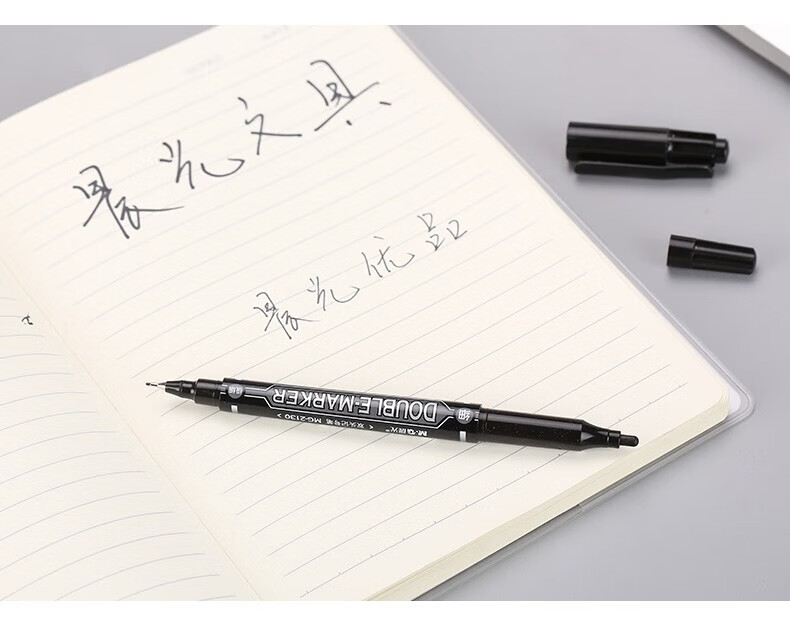 晨光文具
晨光优品
DOUBLE-MARKER
细
M&G晨光
<双头记号笔 MG-2130>